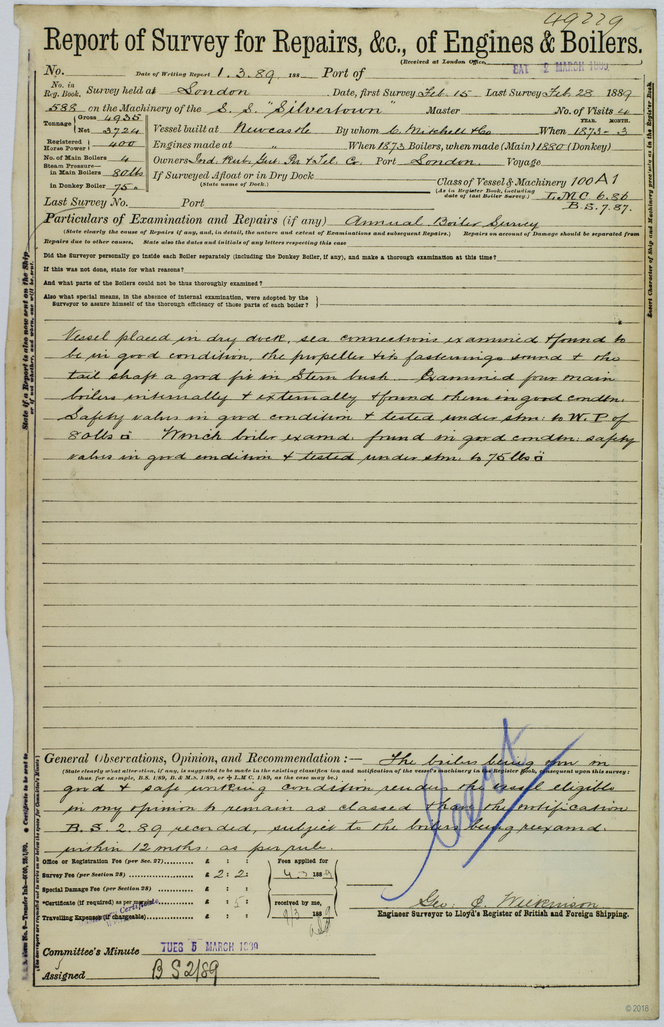 49229
Report of Survey for Repairs, &c., of Engines & Boilers.
(Received at London Office
SAT 2 MARCH 1889
No. Date of Writing Report 1.3.89 188 Port of
No. in Reg. Book. Survey held at London Date, first Survey Feb. 15 Last Survey Feb. 28 1889
588 on the Machinery of the S.S. "Silvertown" Master No. of Visits 4
Tonnage Gross 4935 Net 3724
Vessel built at Newcastle By whom C. Mitchell & Co When 1873-3
YEAR. MONTH.
Registered Horse Power 400
Engines made at " When 1873 Boilers, when made (Main) 1880 (Donkey)
No. of Main Boilers 4
Owners Ind. Rub. Gut. Per & Tel. Co. Port London Voyage
Steam Pressure— in Main Boilers 80 lbs
in Donkey Boiler 75
If Surveyed Afloat or in Dry Dock
(State name of Dock.)
Class of Vessel & Machinery 100A1
(As in Register Book, including date of last Boiler Survey.)
L.M.C. 6.86
B.S. 7.87.
Last Survey No. Port
Particulars of Examination and Repairs (if any) Annual Boiler Survey
(State clearly the cause of Repairs if any, and, in detail, the nature and extent of Examinations and subsequent Repairs.) Repairs on account of Damage should be separated from
Repairs due to other causes. State also the dates and initials of any letters respecting this case
Did the Surveyor personally go inside each Boiler separately (including the Donkey Boiler, if any), and make a thorough examination at this time?
If this was not done, state for what reasons?
And what parts of the Boilers could not be thus thoroughly examined?
Also what special means, in the absence of internal examination, were adopted by the
Surveyor to assure himself of the thorough efficiency of those parts of each boiler?
Vessel placed in dry dock, sea connections examined & found to
be in good condition, the propeller & its fastenings sound & the
tail shaft a good fit in Stern bush. Examined four main
boilers internally & externally & found them in good condtn.
Safety valves in good condition & tested under stm. to W.P. of
80lbs □ Winch boiler examd. found in good condtn: safety
valves in good condition & tested under stm. to 75 lbs □
General Observations, Opinion, and Recommendation :— The boilers being now in
(State clearly what alteration, if any, is suggested to be made in the existing classification and notification of the vessel's machinery in the Register Book, consequent upon this survey:
thus, for example, B.S. 1/89, B. & M.S. 1/89, or L.M.C. 1/89, as the case may be.)
good & safe working condition renders the vessel eligible
in my opinion to remain as classed & have the notification
B.S. 2.89 recorded, subject to the boilers being reexamd.
within 12 mths. as per rule.
Office or Registration Fee (per Sec. 27) £ : :
Survey Fee (per Section 28) £ 2: 2:
Special Damage Fee (per Section 28) £ : :
*Certificate (if required) as per margin £ : 5:
Travelling Expenses (if chargeable) £ : :
Fees applied for
188
received by me,
188
Certificate
Geo: C. Wilkinson
Engineer Surveyor to Lloyd's Register of British and Foreign Shipping.
Committee's Minute TUES 5 MARCH 1889
Assigned B S 2/89
State if a Report is also now sent on the Ship
Insert Character of Ship and Machinery precisely as in the Register Book
© 2018